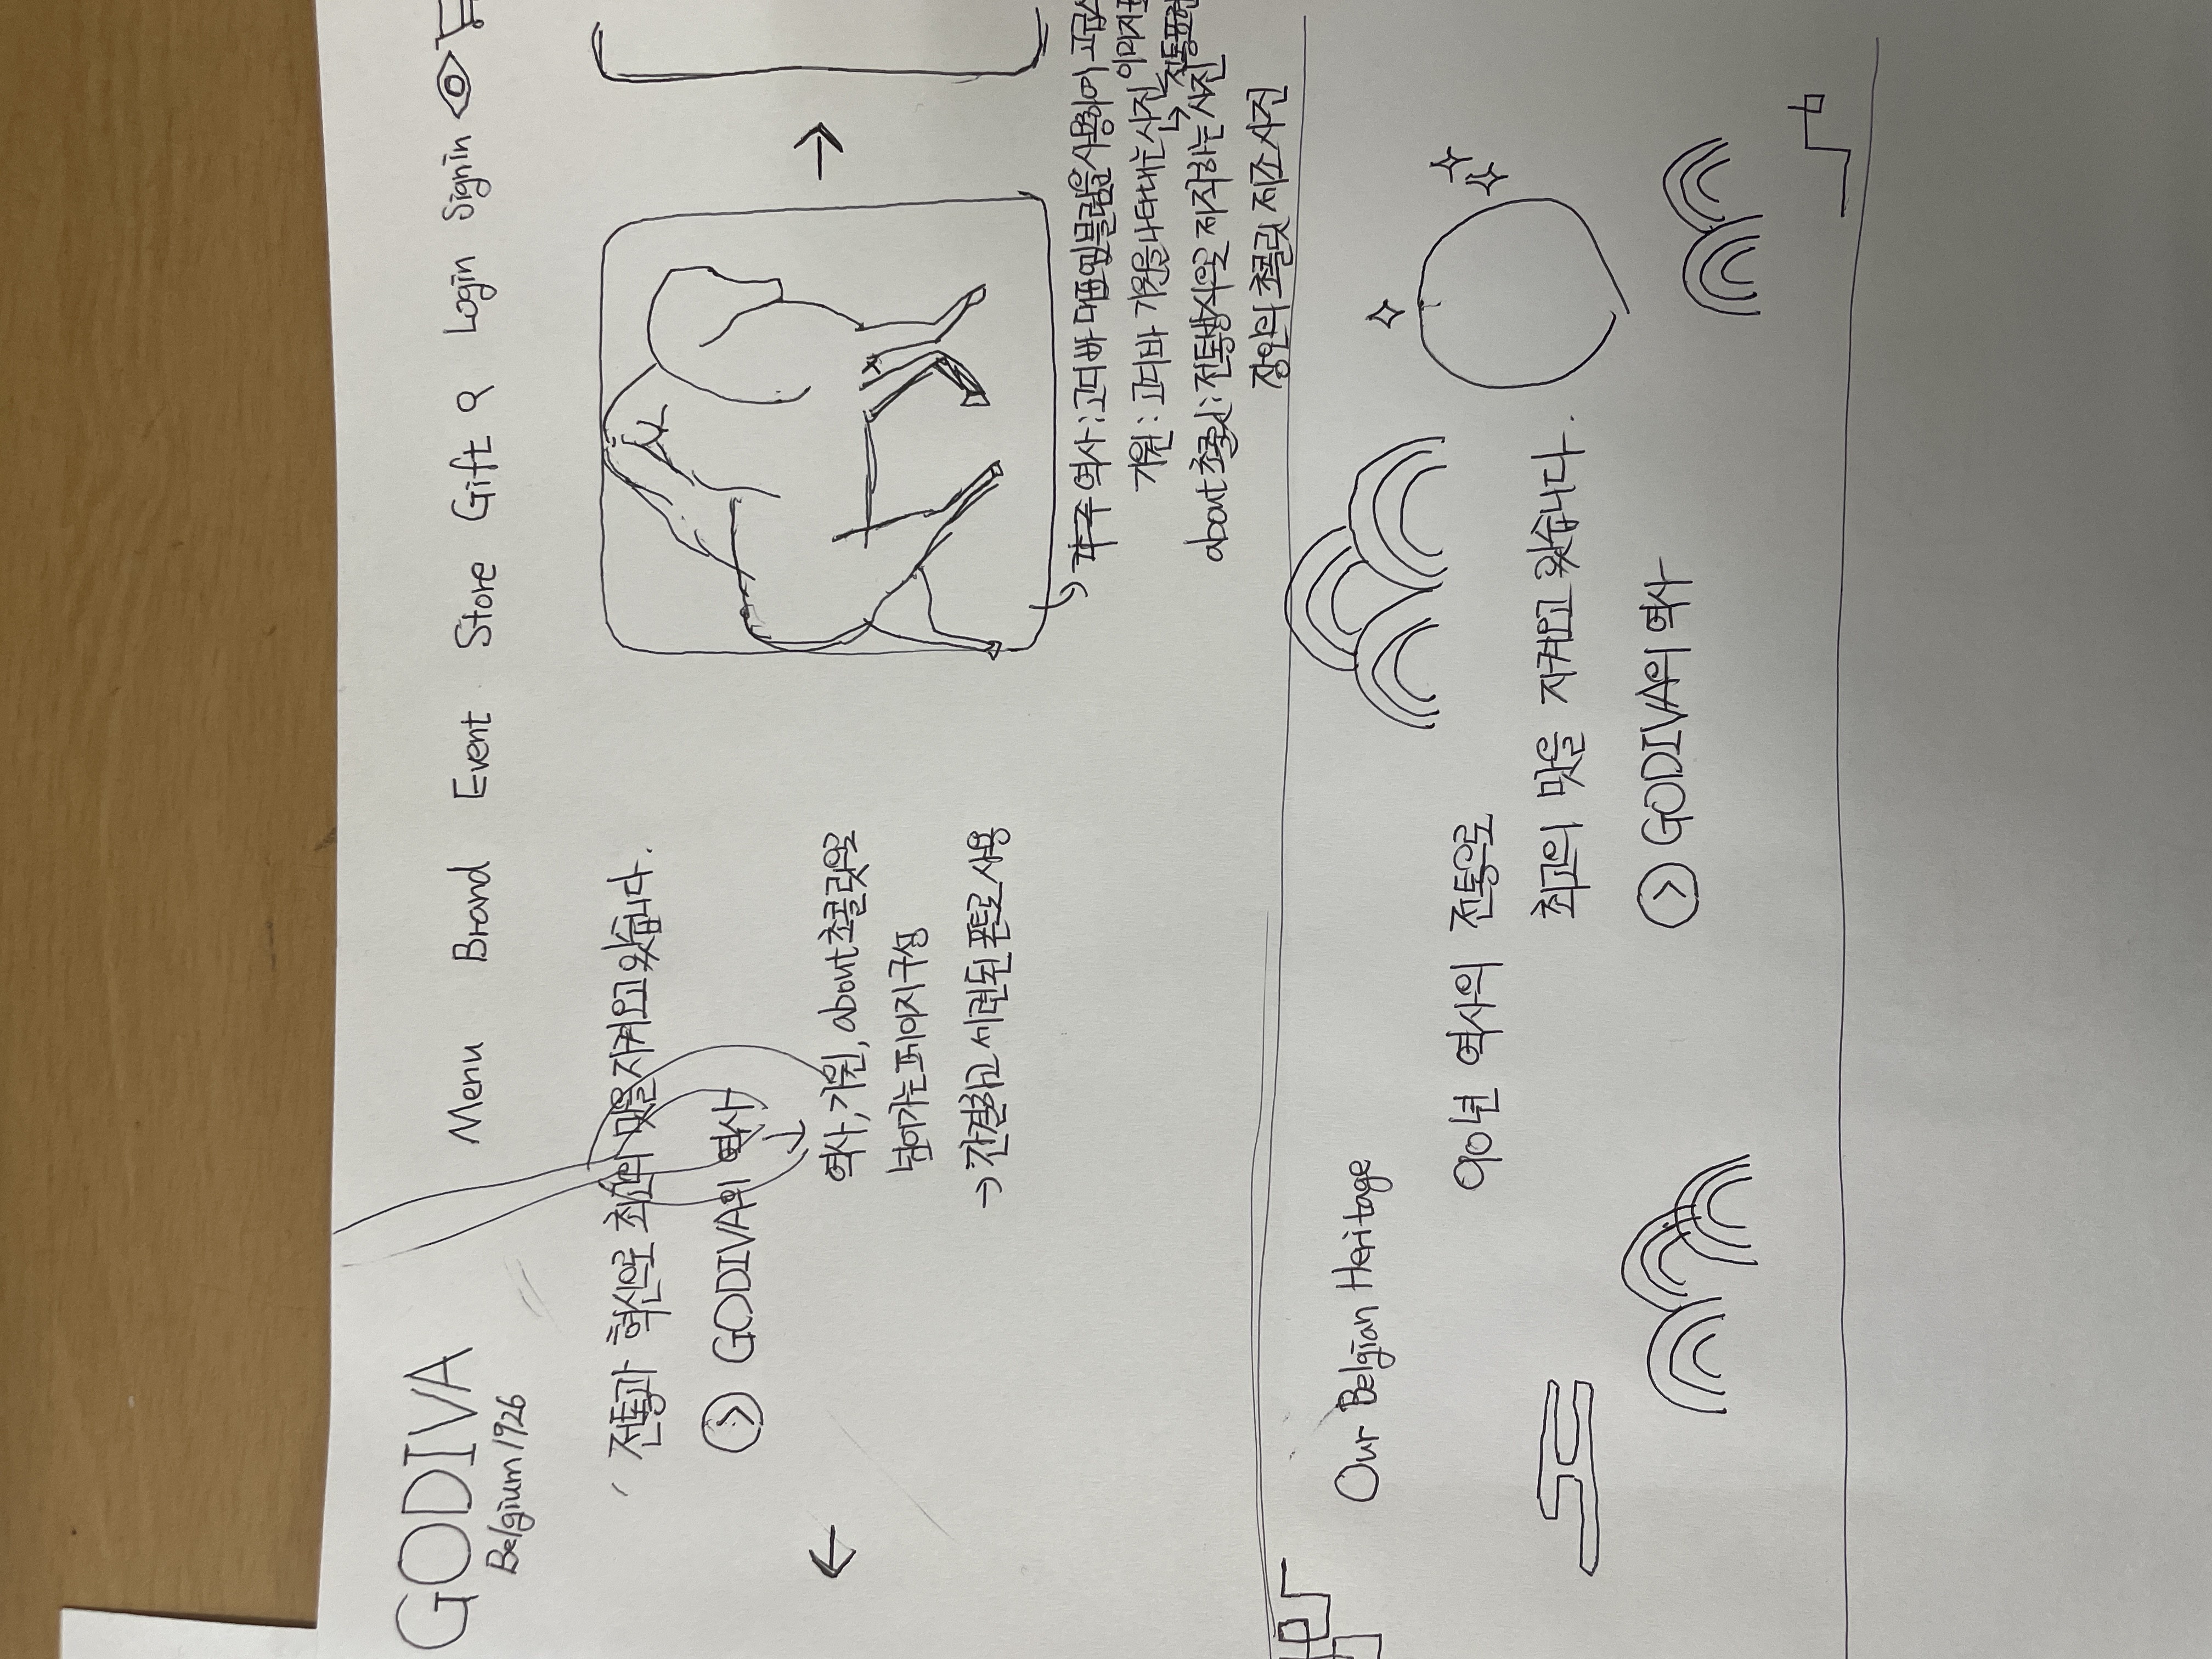 GODIVA
Belgium 1926
Menu Brand Event Store Gift Login Signin
전통과 혁신으로 최고의 맛을 지켜오고 있습니다.
GODIVA의 역사
역사, 기원, about 초콜릿으로
넘어가는 페이지 구성
→ 간결하고 세련된 폰트로 사용
역사 : 고디바 대표엠블럼을 사용하여
기원 : 고디바 기원을 나타내는 사진 이미지
전통표현
about 초콜릿 : 전통방식으로 제작하는 사진
장인의 초콜릿 제조사진
Our Belgian Heritage
90년 역사의 전통으로
최고의 맛을 지켜오고 있습니다.
GODIVA의 역사